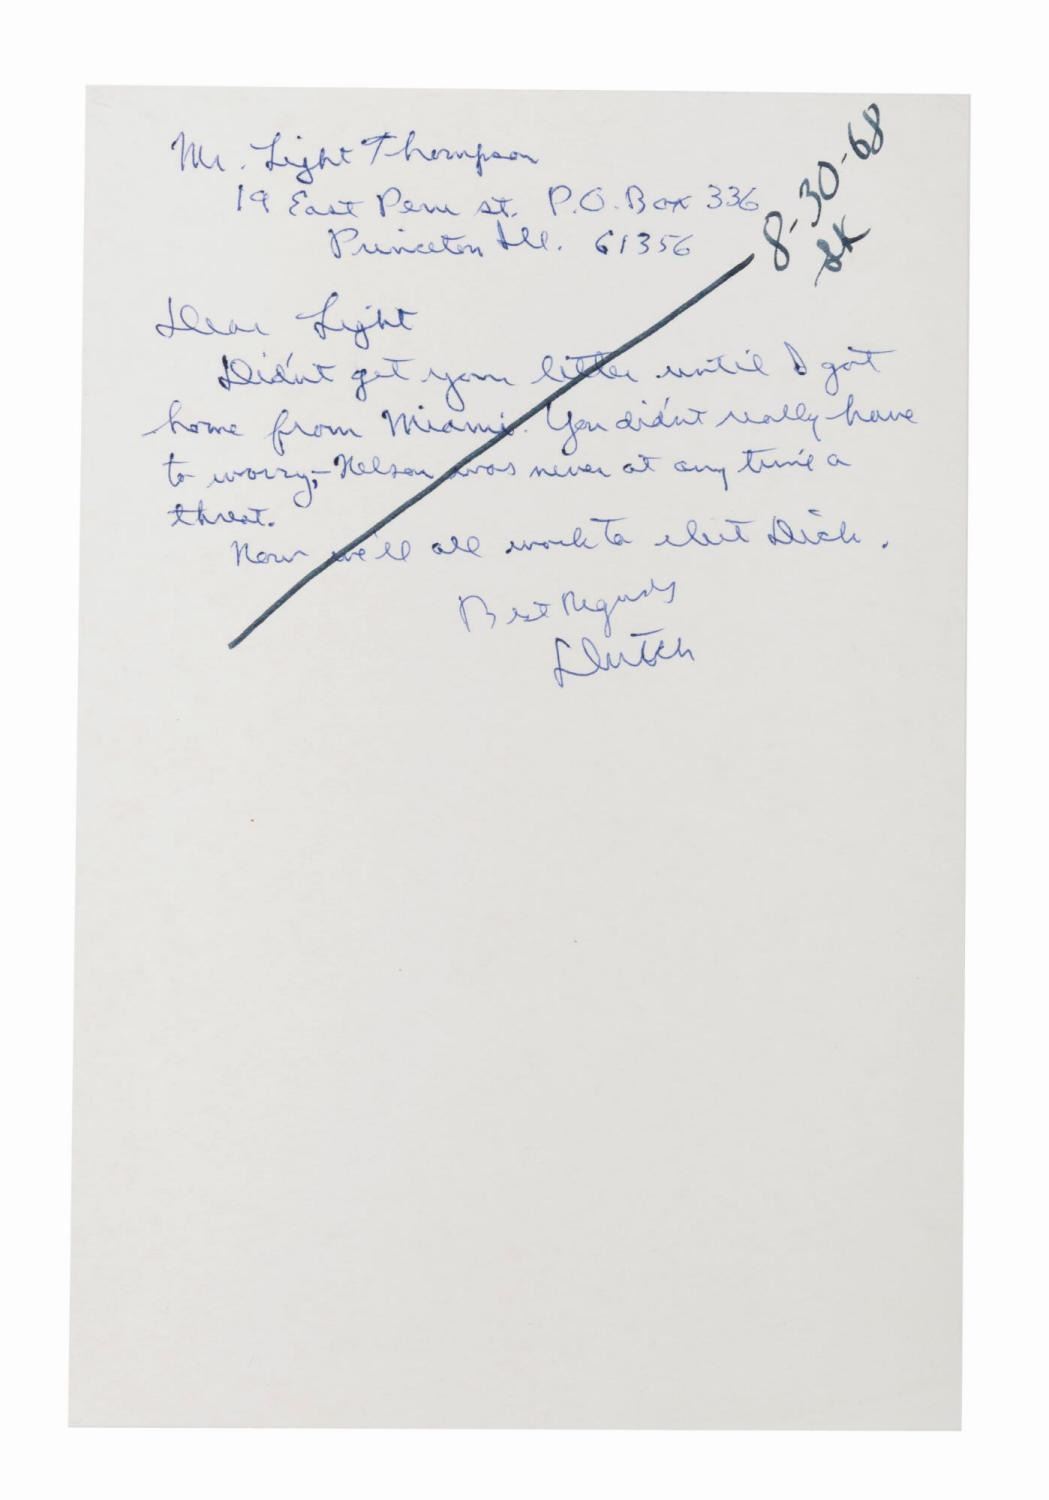 8-30-68
SK
Mr. Light Thompson
19 East Peru St. P.O. Box 336
Princeton Ill. 61356
Dear Light
Didn't get your letter until I got
home from Miami. You didn't really have
to worry,– Nelson was never at any time a
threat.
Now we'll all work to elect Dick.
Best Regards
Dutch